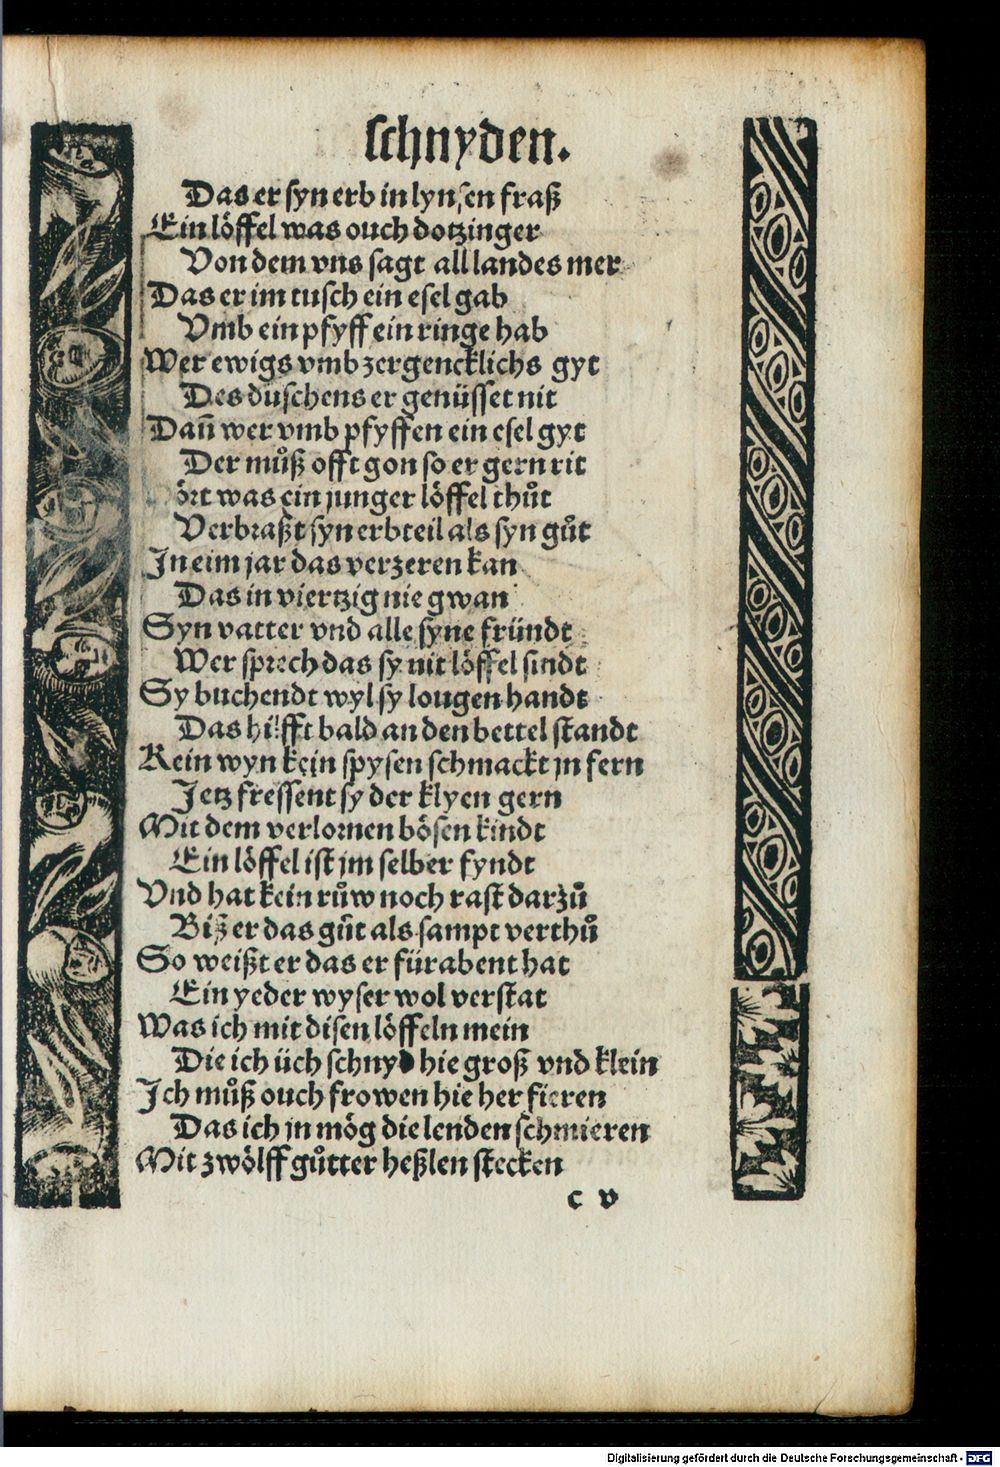 schnyden.
Das er syn erb in lynsen fraß
Ein löffel was ouch dotzinger
Von dem vns sagt all landes mer
Das er im tusch ein esel gab
Vmb ein pfyff ein ringe hab
Wer ewigs vmb zergencklichs gyt
Des duschens er genüsset nit
Dañ wer vmb pfyffen ein esel gyt
Der můß offt gon so er gern rit
ört was ein junger löffel thůt
Verbraßt syn erbteil als syn gůt
In eim jar das verzeren kan
Das in viertzig nie gwan
Syn vatter vnd alle syne fründt
Wer sprech das sy nit löffel sindt
Sy buchendt wyl sy lougen handt
Das hilfft bald an den bettel standt
Kein wyn kein spysen schmackt jn fern
Jetz fressent sy der klyen gern
Mit dem verlornen bösen kindt
Ein löffel ist jm selber fyndt
Vnd hat kein růw noch rast darzů
Biß er das gůt als sampt verthů
So weißt er das er fürabent hat
Ein yeder wyser wol verstat
Was ich mit disen löffeln mein
Die ich üch schnyd hie groß vnd klein
Ich můß ouch frowen hie her fieren
Das ich jn mög die lenden schmieren
Mit zwölff gůtter heßlen stecken
c v
Digitalisierung gefördert durch die Deutsche Forschungsgemeinschaft - DFG